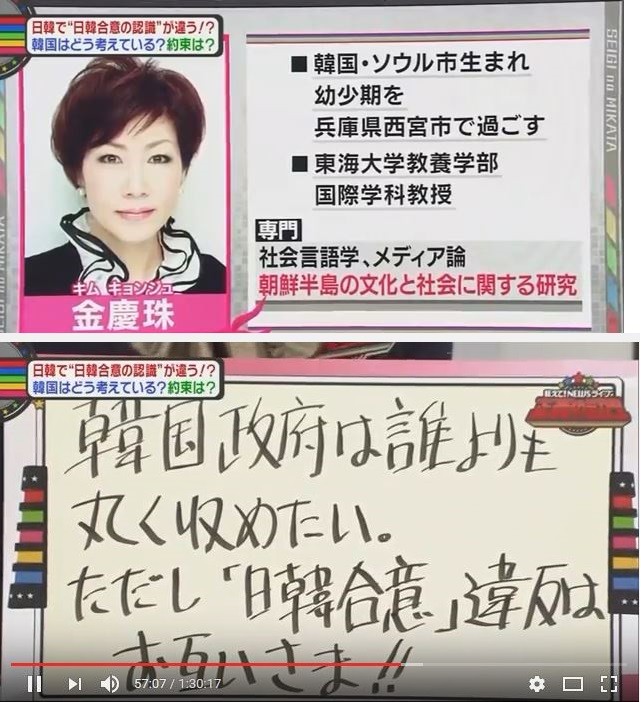 日韓で“日韓合意の認識”が違う!?
韓国はどう考えている?約束は?
■韓国・ソウル市生まれ
幼少期を
兵庫県西宮市で過ごす
■東海大学教養学部
国際学科教授
専門
社会言語学、メディア論
朝鮮半島の文化と社会に関する研究
キム キョンジュ
金慶珠
SEIGI no MIKATA
日韓で“日韓合意の認識”が違う!?
韓国はどう考えている?約束は?
韓国政府は誰よりも
丸く収めたい。
ただし「日韓合意」違反は
お互いさま!!
57:07 / 1:30:17